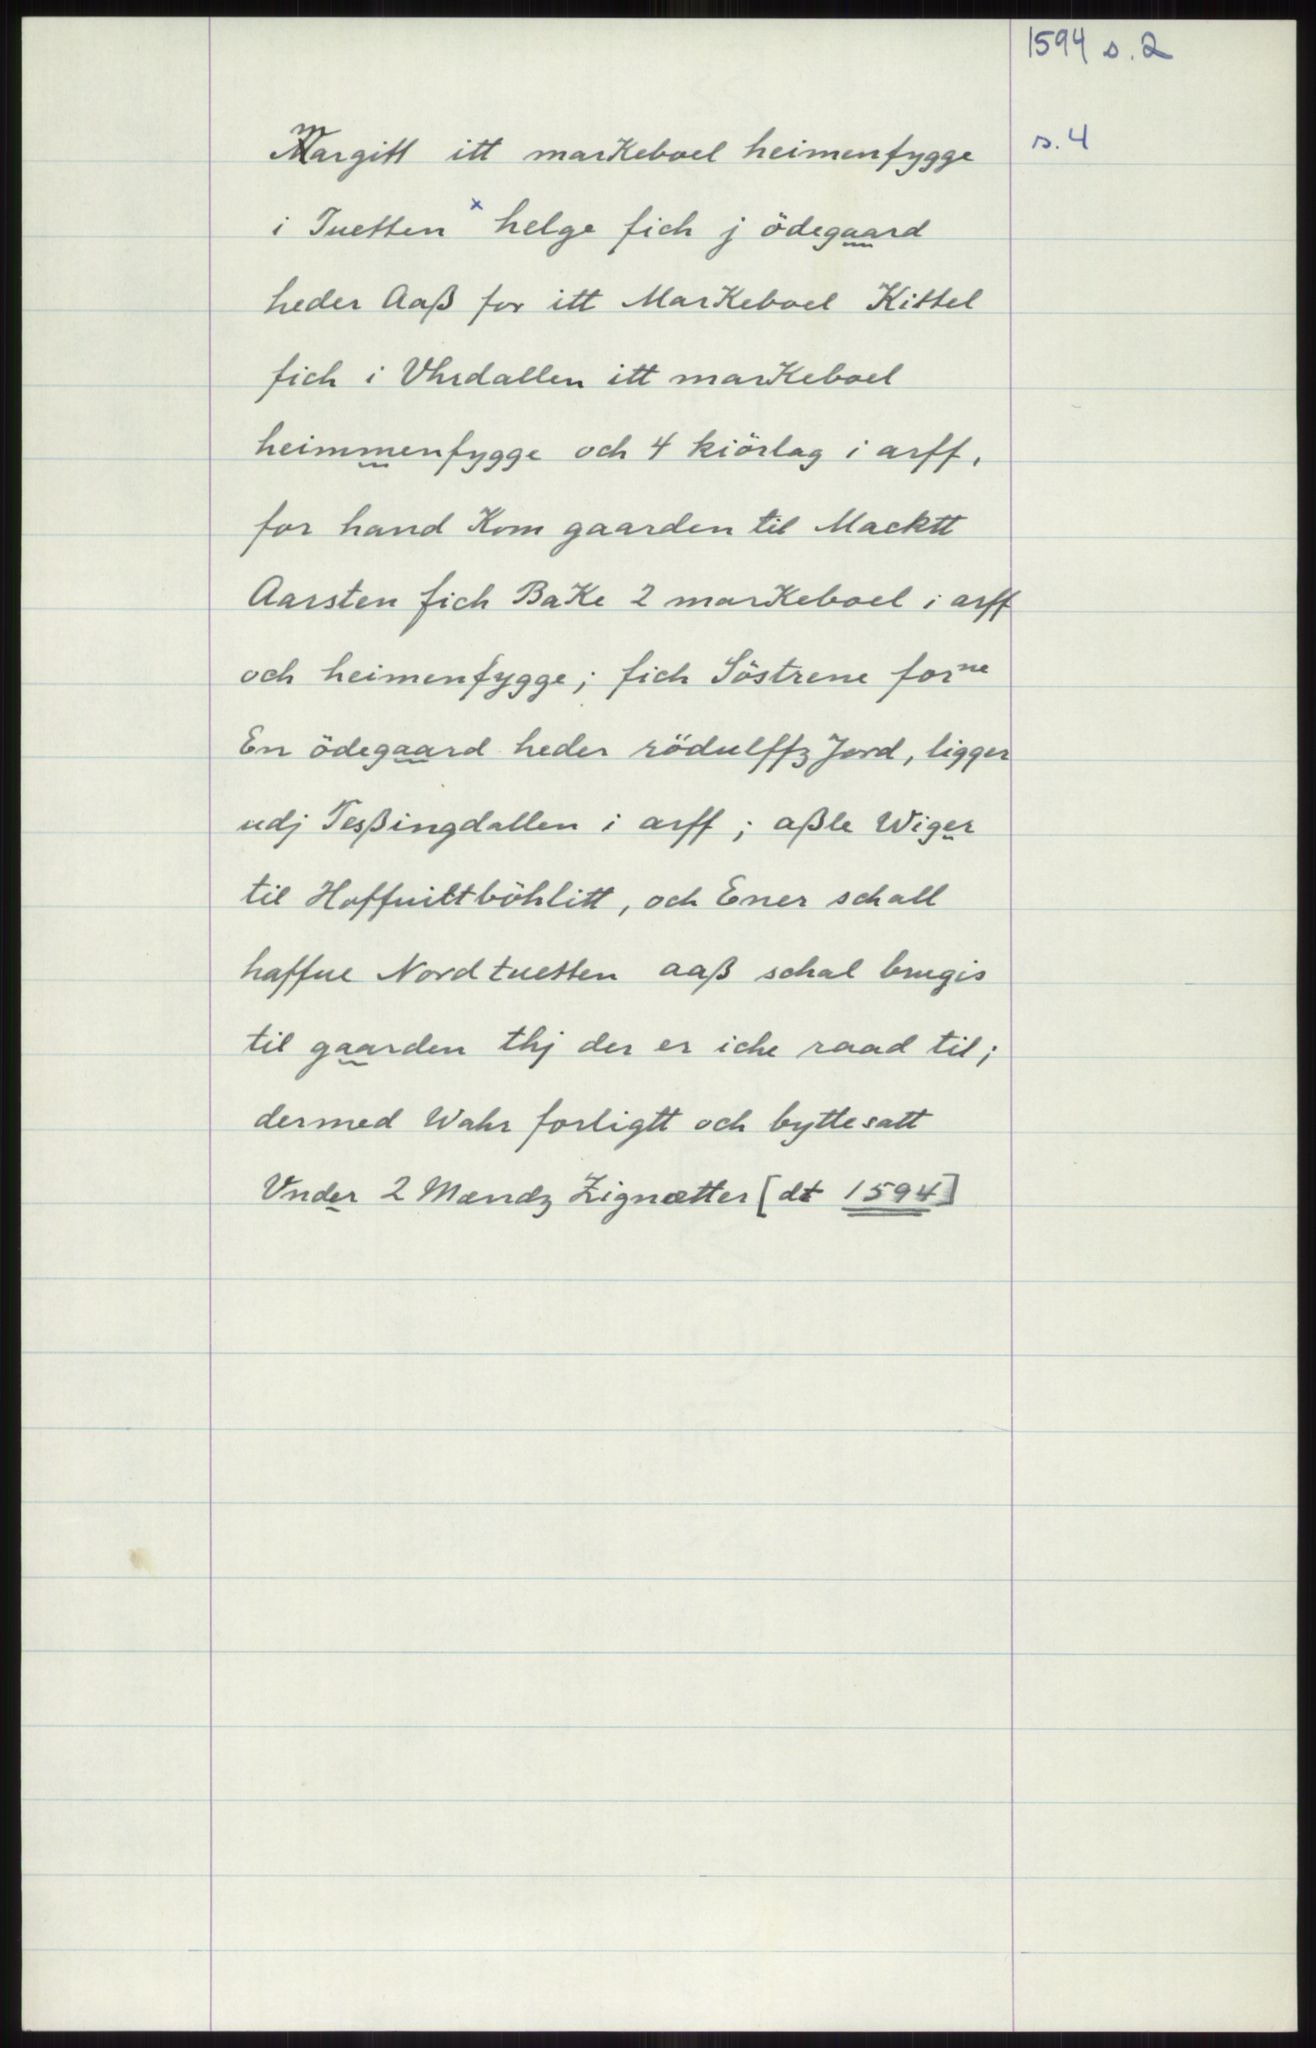 1594 s. 2
Margitt itt marKeboel heimenfygge
s. 4
i Tuetten x helge fich j ödegaard
heder Aaß for itt MarKeboel Kittel
fich i Vhrdallen itt marKeboel
heimmenfygge och 4 kiörlag i arff,
for hand Kom gaarden til Macktt
Aarsten fich BaKe 2 marKeboel i arff
och heimenfygge; fich Söstrene forne
En ödegaard heder rödulffz Jord, ligger
udj Teßingdallen i arff; aßle Wiger
til Hoffuittböhlitt, och Ener schall
haffue Nordtuetten aaß schal brugis
til gaarden thj der er iche raad til;
dermed Wahr forligtt och byttesatt
Vnder 2 Mændz Zignætter [dt 1594]